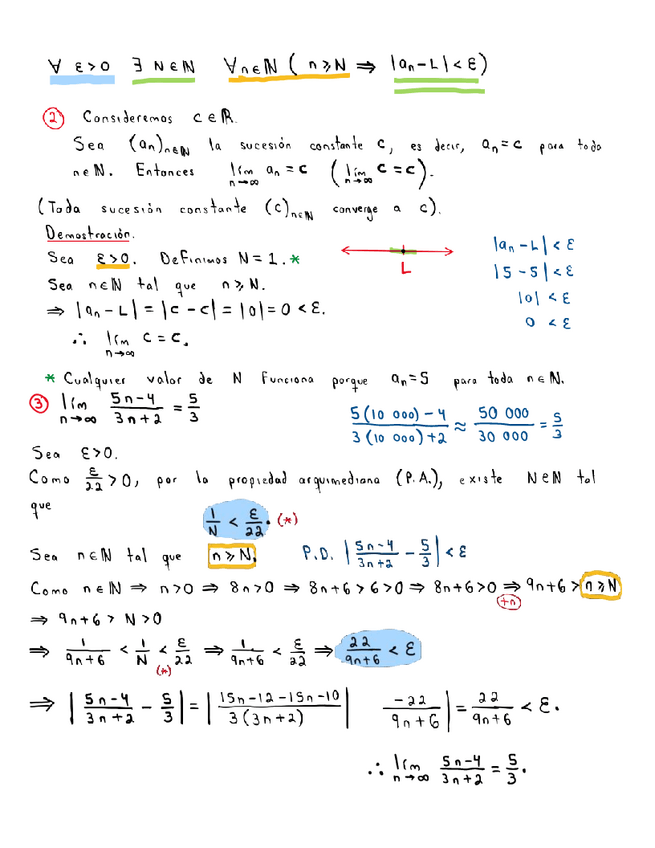 ∀ ε>0 ∃ N∈ℕ ∀n∈ℕ ( n⩾N ⇒ |aₙ-L| < ε )
② Consideremos c∈ℝ.
Sea (aₙ)n∈ℕ la sucesión constante c, es decir, aₙ = c para toda
n∈ℕ. Entonces lím n→∞ aₙ = c ( lím n→∞ c = c ).
(Toda sucesión constante (c)n∈ℕ converge a c).
Demostración.
Sea ε>0. Definimos N = 1. *
Sea n∈ℕ tal que n⩾N.
⇒ |aₙ-L| = |c-c| = |0| = 0 < ε.
∴ lím n→∞ c = c.
L
|aₙ-L| < ε
|5-5| < ε
|0| < ε
0 < ε
* Cualquier valor de N funciona porque aₙ=5 para toda n∈ℕ.
③ lím n→∞ (5n-4)/(3n+2) = 5/3
(5(10 000) - 4)/(3(10 000)+2) ≈ 50 000/30 000 = 5/3
Sea ε>0.
Como ε/22 > 0, por la propiedad arquimediana (P.A.), existe N∈ℕ tal
que
1/N < ε/22. (*)
Sea n∈ℕ tal que n⩾N. P.D. |(5n-4)/(3n+2) - 5/3| < ε
Como n∈ℕ ⇒ n>0 ⇒ 8n>0 ⇒ 8n+6>6>0 ⇒ 8n+6>0 ⇒ 9n+6 > n⩾N
+n
⇒ 9n+6 > N > 0
⇒ 1/(9n+6) < 1/N < ε/22 ⇒ 1/(9n+6) < ε/22 ⇒ 22/(9n+6) < ε
(*)
⇒ |(5n-4)/(3n+2) - 5/3| = |(15n-12-15n-10)/(3(3n+2))| (-22)/(9n+6)| = 22/(9n+6) < ε.
∴ lím n→∞ (5n-4)/(3n+2) = 5/3.